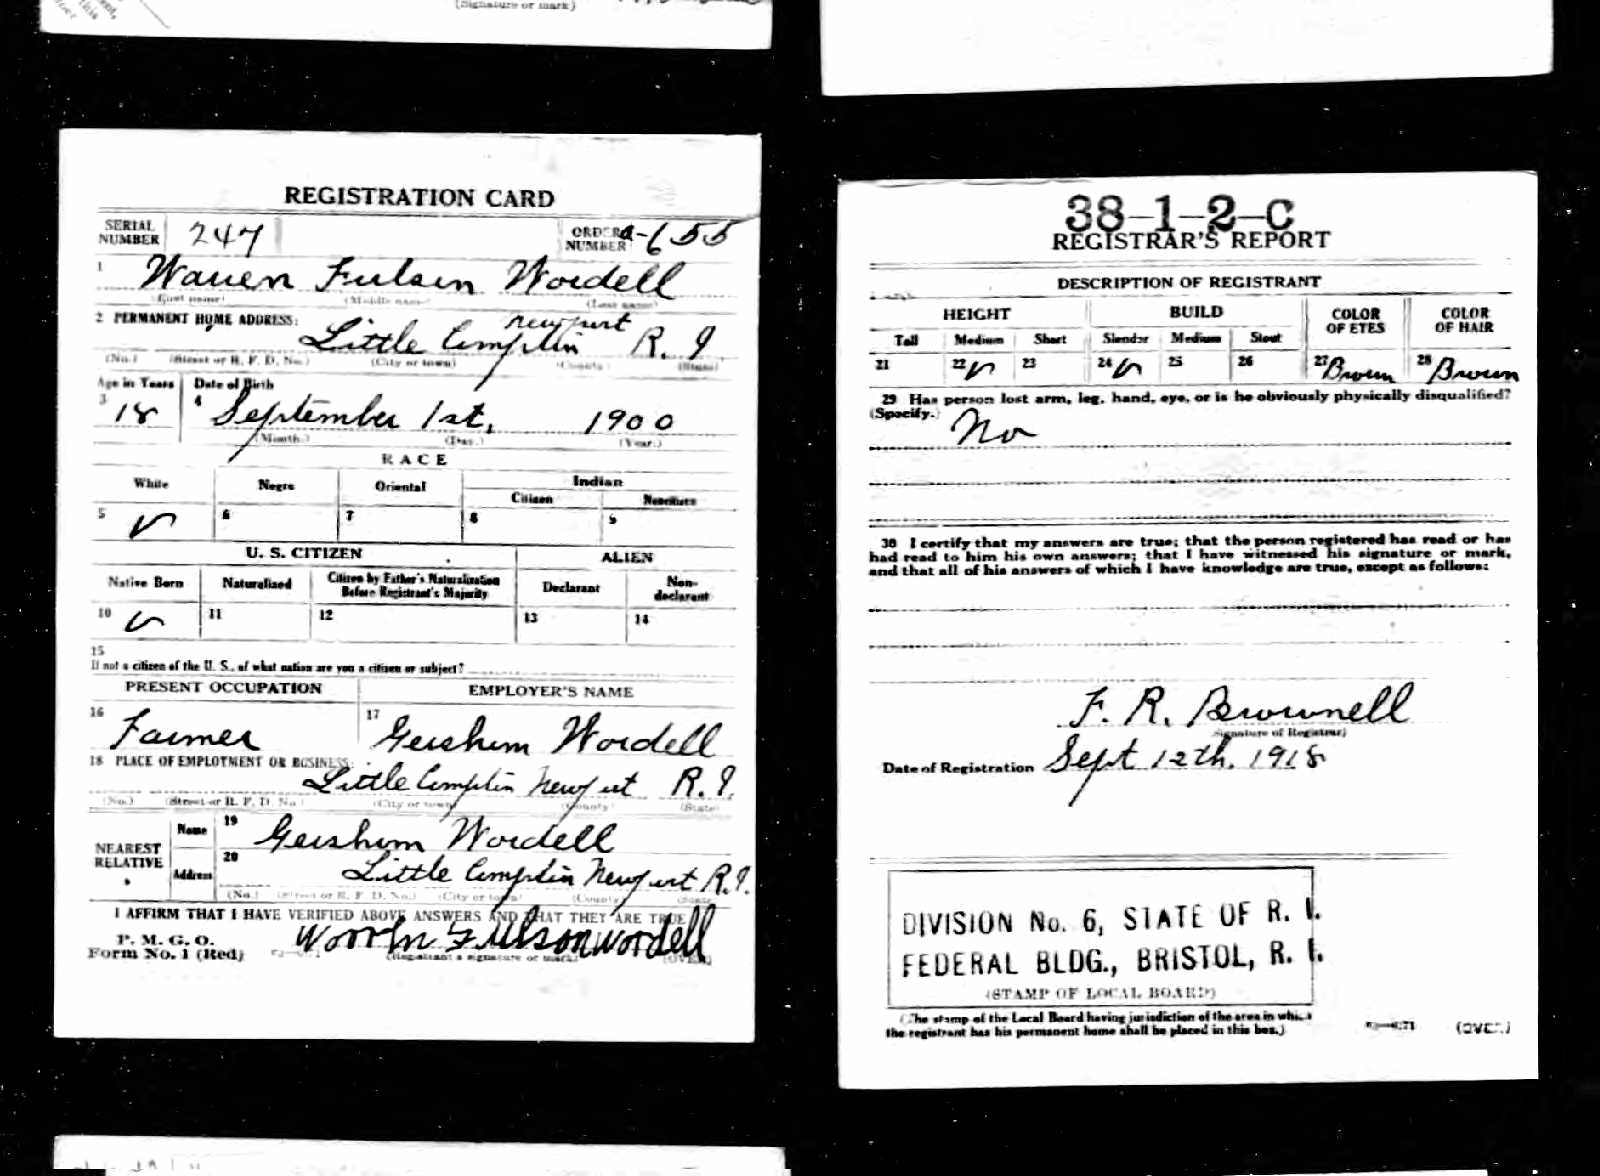 (Signature or mark)
REGISTRATION CARD
SERIAL NUMBER 247 ORDER NUMBER a-655
1 Warren Fulson Wordell
(First name) (Middle name) (Last name)
2 PERMANENT HOME ADDRESS: Newport
Little Compton R. I
(No.) (Street or R. F. D. No.) (City or town) (County) (State)
Age in Years Date of Birth
3 18 4 September 1st, 1900
(Month.) (Day.) (Year.)
RACE
White Negro Oriental Indian
Citizen Noncitizen
5 6 7 8 9
U. S. CITIZEN ALIEN
Native Born Naturalized Citizen by Father's Naturalization Before Registrant's Majority Declarant Non-declarant
10 11 12 13 14
15
If not a citizen of the U. S., of what nation are you a citizen or subject?
PRESENT OCCUPATION EMPLOYER'S NAME
16 Farmer 17 Gershum Wordell
18 PLACE OF EMPLOYMENT OR BUSINESS:
Little Compton Newport R. I.
(No.) (Street or R. F. D. No.) (City or town) (County) (State)
NEAREST RELATIVE Name 19 Gershum Wordell
Address 20 Little Compton Newport R. I.
(No.) (Street or R. F. D. No.) (City or town) (County) (State)
I AFFIRM THAT I HAVE VERIFIED ABOVE ANSWERS AND THAT THEY ARE TRUE
P. M. G. O.
Form No. 1 (Red) Worrln Fulson wordell
(Registrant's signature or mark) (OVER)
38-1-2-C
REGISTRAR'S REPORT
DESCRIPTION OF REGISTRANT
HEIGHT BUILD COLOR OF EYES COLOR OF HAIR
Tall Medium Short Slender Medium Stout
21 22 23 24 25 26 27 Brown 28 Brown
29 Has person lost arm, leg, hand, eye, or is he obviously physically disqualified?
(Specify.) No
30 I certify that my answers are true; that the person registered has read or has
had read to him his own answers; that I have witnessed his signature or mark,
and that all of his answers of which I have knowledge are true, except as follows:
F. R. Brownell
(Signature of Registrar)
Date of Registration Sept 12th, 1918
DIVISION No. 6, STATE OF R. I.
FEDERAL BLDG., BRISTOL, R. I.
(STAMP OF LOCAL BOARD)
(The stamp of the Local Board having jurisdiction of the area in which
the registrant has his permanent home shall be placed in this box.)
(OVER)